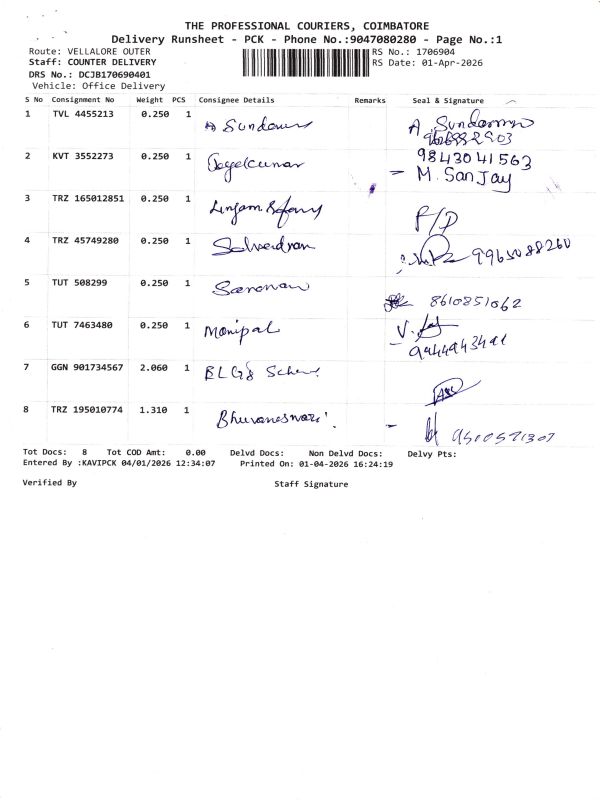 THE PROFESSIONAL COURIERS, COIMBATORE
Delivery Runsheet - PCK - Phone No.:9047080280 - Page No.:1
Route: VELLALORE OUTER RS No.: 1706904
Staff: COUNTER DELIVERY RS Date: 01-Apr-2026
DRS No.: DCJB170690401
Vehicle: Office Delivery
S No Consignment No Weight PCS Consignee Details Remarks Seal & Signature
1 TVL 4455213 0.250 1 A Sundaram A. Sundaram
2 KVT 3552273 0.250 1 9843041563
M. Sanjay
3 TRZ 165012851 0.250 1 Lingam P/D
4 TRZ 45749280 0.250 1 9965088260
5 TUT 508299 0.250 1 Saravanan 8610851062
6 TUT 7463480 0.250 1 Manipal V.
9444943491
7 GGN 901734567 2.060 1
8 TRZ 195010774 1.310 1 Bhuvaneswari
Tot Docs: 8 Tot COD Amt: 0.00 Delvd Docs: Non Delvd Docs: Delvy Pts:
Entered By :KAVIPCK 04/01/2026 12:34:07 Printed On: 01-04-2026 16:24:19
Verified By Staff Signature